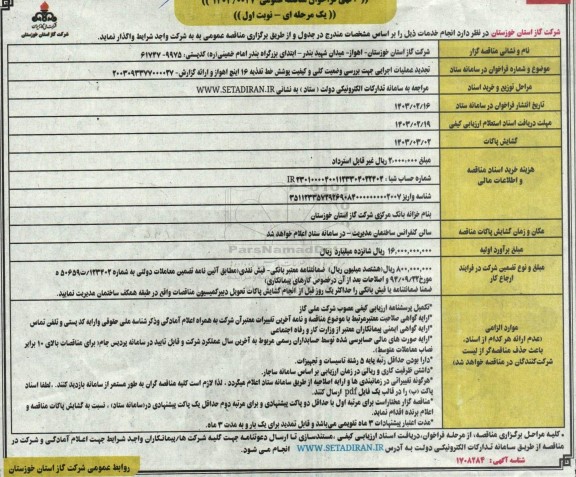 آگهی فراخوان مناقصه عمومی
(( یک مرحله ای - نوبت اول ))
شرکت گاز استان خوزستان
شرکت گاز استان خوزستان در نظر دارد انجام خدمات ذیل را بر اساس مشخصات مندرج در جدول و از طریق برگزاری مناقصه عمومی به به شرکت واجد شرایط واگذار نماید.
نام و نشانی مناقصه گزار
شرکت گاز استان خوزستان- اهواز- میدان شهید بندر- ابتدای بزرگراه بندر امام خمینی(ره) کدپستی: ۹۹۷۵-۶۱۷۳۷
موضوع و شماره فراخوان در سامانه ستاد
تجدید عملیات اجرایی جهت بررسی وضعیت کلی و کیفیت پوشش خط تغذیه ۱۶ اینچ اهواز و ارائه گزارش- ۲۰۰۳۰۹۳۳۷۷۰۰۰۰۲۷
مراحل توزیع و خرید اسناد
مراجعه به سامانه تدارکات الکترونیکی دولت ( ستاد ) به نشانی WWW.SETADIRAN.IR
تاریخ انتشار فراخوان در سامانه ستاد
۱۴۰۳/۰۲/۱۶
مهلت دریافت اسناد استعلام ارزیابی کیفی
۱۴۰۳/۰۲/۱۹
گشایش پاکات
۱۴۰۳/۰۳/۰۲
هزینه خرید اسناد مناقصه و اطلاعات مالی
مبلغ ۲,۰۰۰,۰۰۰ ریال غیر قابل استرداد
شماره حساب شبا :
شناسه واریز
بنام خزانه بانک مرکزی شرکت گاز استان خوزستان
مکان و زمان گشایش پاکات مناقصه
سالن کنفرانس ساختمان مدیریت - در سامانه ستاد اعلام خواهد شد
مبلغ برآورد اولیه
۱۶,۰۰۰,۰۰۰,۰۰۰ ریال شانزده میلیارد ریال
مبلغ و نوع تضمین شرکت در فرایند ارجاع کار
۸۰۰,۰۰۰,۰۰۰ ریال(هشتصد میلیون ریال) ضمانتنامه معتبر بانکی- فیش نقدی(مطابق آئین نامه تضمین معاملات دولتی به شماره ۱۲۳۴۰۲/ت۵۰۶۵۹ه
مورخ ۹۴/۰۹/۲۲ و اصلاحات بعد از آن درخصوص کارهای پیمانکاری)
ضمنا ضمانتنامه یا فیش بانکی را حداکثر یک روز قبل از انجام گشایش پاکات تحویل دبیرکمیسیون مناقصات واقع در طبقه همکف ساختمان مدیریت نمایید.
موارد الزامی
(عدم ارائه هر کدام از اسناد، باعث حذف مناقصه‌گر از لیست شرکت‌کنندگان در مناقصه خواهد شد)
*تکمیل پرسشنامه ارزیابی کیفی مصوب شرکت ملی گاز
*ارایه گواهی صلاحیت معتبرمرتبط با موضوع مناقصه و نامه آخرین تغییرات معتبرآن شرکت به همراه اعلام آمادگی وذکر شناسه ملی حقوقی وارایه کد پستی و تلفن تماس
*ارایه گواهی ایمنی پیمانکاران معتبر از وزارت کار و رفاه اجتماعی
*ارایه صورت های مالی حسابرسی شده توسط حسابداران رسمی مربوط به آخرین سال عملکرد شرکت و قابل تایید در سامانه پردیس جام؛ برای مناقصات بالای ۱۰ برابر نصاب معاملات متوسط).
*دارا بودن حداقل رتبه پایه ۵ رشته تاسیسات و تجهیزات.
*داشتن ظرفیت کاری و ریالی در زمان ارزیابی بر اساس سامانه ساجار.
*هرگونه تغییراتی در زمانبندی ها و ارایه اصلاحیه از طریق سامانه ستاد اعلام میگردد ، لذا لازم است کلیه مناقصه گران به طور مستمر از سامانه بازدید کنند . لطفا اسناد پاکت (ب) را در قالب یک فایل pdf ارسال کنند.
*مناقصه گزار مختاراست برای مرتبه اول با حداقل دو پاکت پیشنهادی و برای مرتبه دوم حداقل یک پاکت پیشنهادی در(سامانه ستاد) ، نسبت به گشایش پاکات مناقصه و اعلام برنده اقدام نماید.
*مدت اعتبار پیشنهادات ۳ ماه تقویمی می‌باشد و قابل تمدید برای یک بار و به مدت ۳ ماه.
• کلیه مراحل برگزاری مناقصه، از مرحله فراخوان، دریافت اسناد ارزیابی کیفی ،مستندسازی تا ارسال دعوتنامه جهت کلیه شرکت ها/پیمانکاران واجد شرایط جهت اعلام آمادگی و شرکت در مناقصه از طریق سامانه تدارکات الکترونیکی دولت به آدرس WWW.SETADIRAN.IR انجام می شود.
شناسه آگهی: ۱۷۰۸۲۸۴
روابط عمومی شرکت گاز استان خوزستان